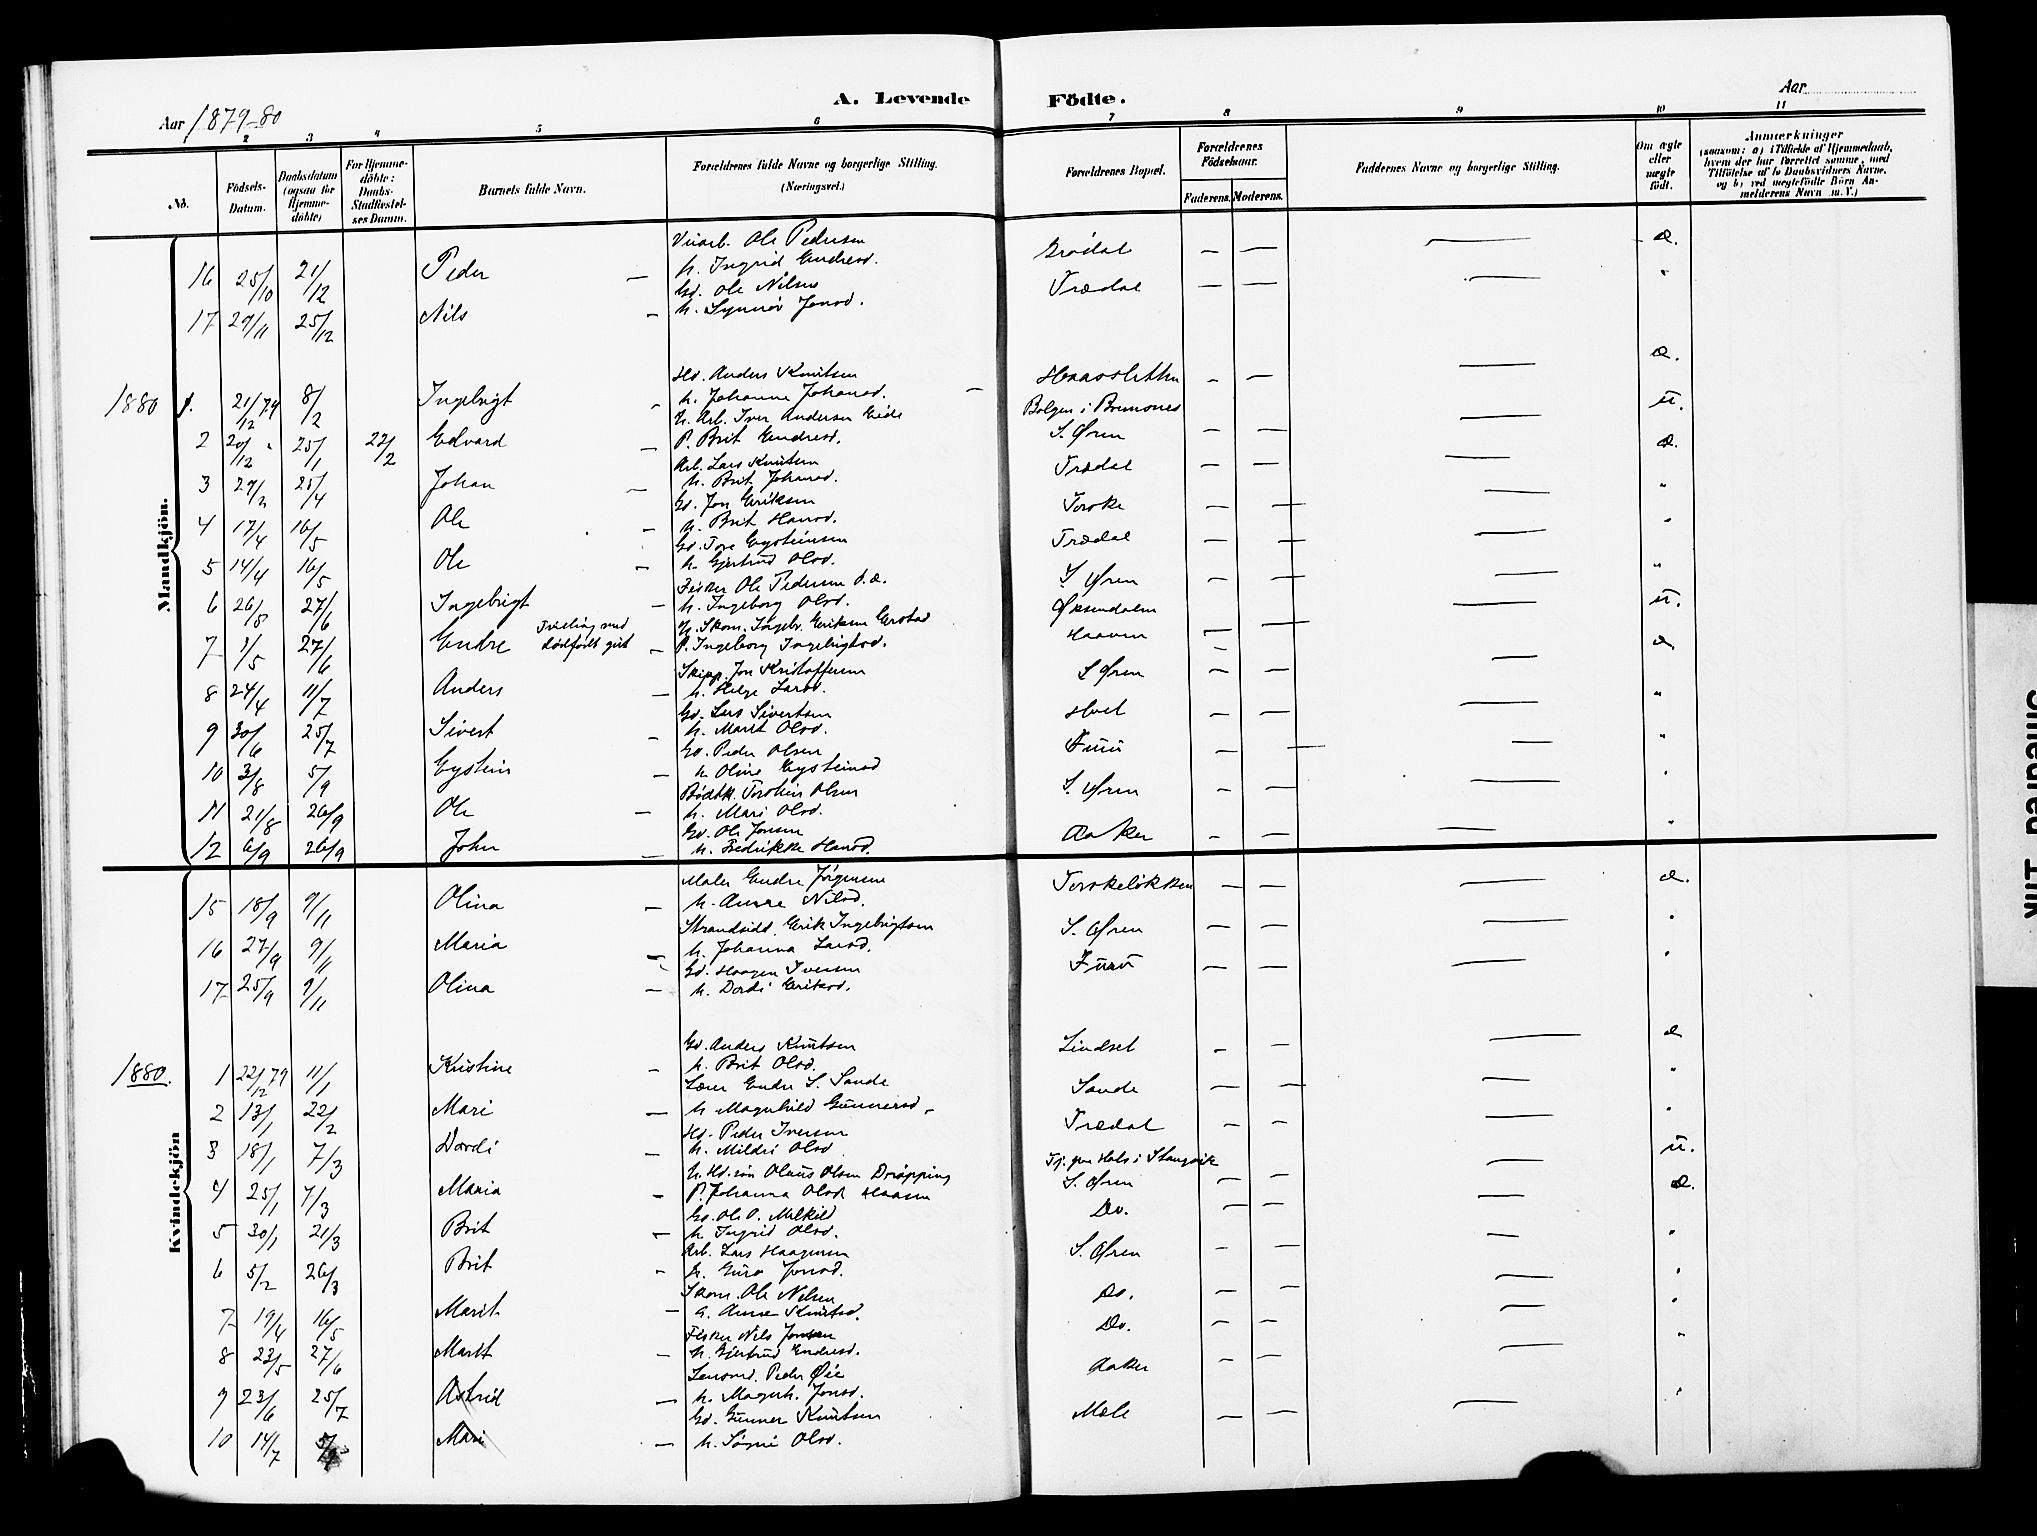 A. Levende Födte.
Aar 1879-80
Aar
2 3 4 5 6 7 8 9 10 11
No.
Födsels-Datum.
Daabsdatum (ogsaa for Hjemme-döbte)
For Hjemme-döbte: Daabs-Stadfæstel-ses Datum.
Barnets fulde Navn.
Forældrenes fulde Navne og borgerlige Stilling. (Næringsvei.)
Forældrenes Bopæl.
Forældrenes Födselsaar.
Faderens. Moderens.
Faddernes Navne og borgerlige Stilling.
Om ægte eller uægte födt.
Anmærkninger
(saasom: a) i Tilfælde af Hjemmedaab, hvem der har forrettet samme, med Tilföielse af to Daabsvidners Navne, og b) ved uægtefödte Börn An-melderens Navn m. V.)
Mandkjön.
16 25/10 21/12 Peder — Ole Pedersen Grødal — — — æ.
h. Ingrid Endresd.
17 29/11 25/12 Nils — Gd. Ole Nilsen Trædal — — — "
h. Synnøv Jonsd.
1880 1. 21/12 79 8/2 Ingebrigt — Hd. Anders Knutsen — — — æ.
h. Johanne Johansd.
2 20/12 " 25/1 22/2 Edvard — U. Arb. Iver Andersen Eide Bolgen i Bremsnes — — — u.
P. Brit Endresd. S. Øren
3 29/2 25/4 Johan — Arb. Lars Knutsen Trædal — — — æ.
h. Brit Johansd.
4 17/4 16/5 Ole — Gd. Jon Eriksen Torske — — — "
h. Brit Hansd.
5 14/4 16/5 Ole — Gd. Tore Eysteinsen Trædal — — — "
h. Gjertrud Olsd.
6 26/5 27/6 Ingebrigt — Fisker Ole Pedersen d.æ. S. Øren — — — "
h. Ingeborg Olsd.
7 1/5 27/6 Endre Tvilling med dødfødt gut — U. Skom. Ingebr. Eriksen Øksendalen — — — u.
P. Ingeborg Ingebrigtsd. Haaven
8 24/4 11/7 Anders — Skipp. Jon Kristoffersen S Øren — — — æ
h. Helge Larsd.
9 30/6 25/7 Sivert — Gd. Lars Sivertsen Hoel — — — "
h. Marit Olsd.
10 3/8 5/9 Eystein — Gd. Peder Olsen Furu — — — "
h Oline Eysteinsd
11 21/8 26/9 Ole — Bødtk. Torstein Olsen S. Øren — — — "
h. Mari Olsd.
12 6/9 26/9 John — Gd. Ole Jonsen Aaker — — — "
h. Fredrikke Hansd.
Kvindekjön
15 18/9 9/11 Olina — Maler Endre Jørgensen Torskeløkken — — — æ.
h. Anne Nilsd.
16 27/9 9/11 Maria — Strandsidd. Erik Ingebrigtsen S. Øren — — — "
h. Johanna Larsd.
17 25/9 9/11 Olina — Gd. Haagen Iversen Furu — — — "
h. Dordi Eriksd.
1880. 1 22/12 79 11/1 Kristine — Gd. Anders Knutsen Lindset — — — æ
h. Brit Olsd.
2 13/1 22/2 Mari — Lærer Endre S. Sande Sande — — — "
h Magnhild Gunnersd.
3 18/1 7/3 Dordi — Hd. Peder Iversen Trædal — — — "
h. Mildri Olsd
4 25/1 7/3 Maria — U. Hd. søn Olaus Olsen Drøpping Tj. paa Hals i Stangvik — — — u.
P. Johanna Olsd Haaven S. Øren
5 30/1 21/3 Brit — Gd. Ole O. Melkild Do. — — — æ.
h Ingrid Olsd.
6 5/2 26/3 Brit — Arb. Lars Haagensen S. Øren — — — "
h. Guro Jonsd.
7 19/4 16/5 Marit — Skom. Ole Nilsen Do. — — — "
h. Anne Knutsd.
8 23/5 27/6 Marit — Fisker Nils Jonsen Do. — — — "
h. Gjertrud Endresd.
9 23/6 25/7 Astrid — Lensmd. Peder Øie Aaker — — — "
h. Magnh. Jonsd.
10 14/7 5/9 Mari — Gd. Gunner Knutsen Mæle — — — "
h. Signi Olsd.